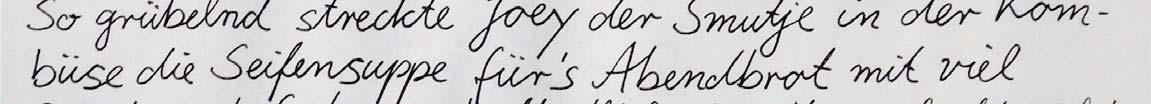 So grübelnd streckte Joey der Smutje in der Kom-
büse die Seifensuppe für's Abendbrot mit viel